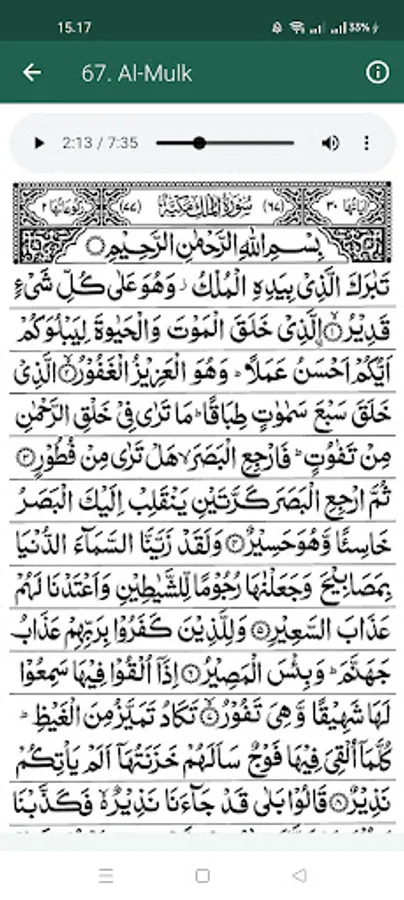 15.17
33%
67. Al-Mulk
2:13 / 7:35
اٰيَاتُهَا ٣٠ (٦٧) سُوْرَةُ الْمُلْكِ مَكِّيَّةٌ (٧٧) رُكُوْعَاتُهَا ٢
بِسْمِ اللّٰهِ الرَّحْمٰنِ الرَّحِيْمِ
تَبٰرَكَ الَّذِيْ بِيَدِهِ الْمُلْكُ ز وَهُوَ عَلٰى كُلِّ شَيْءٍ
قَدِيْرٌ ۙ۝١ الَّذِيْ خَلَقَ الْمَوْتَ وَالْحَيٰوةَ لِيَبْلُوَكُمْ
اَيُّكُمْ اَحْسَنُ عَمَلًا ؕ وَهُوَ الْعَزِيْزُ الْغَفُوْرُ ۙ۝٢ الَّذِيْ
خَلَقَ سَبْعَ سَمٰوٰتٍ طِبَاقًا ؕ مَا تَرٰى فِيْ خَلْقِ الرَّحْمٰنِ
مِنْ تَفٰوُتٍ ؕ فَارْجِعِ الْبَصَرَ ۙ هَلْ تَرٰى مِنْ فُطُوْرٍ ۝٣
ثُمَّ ارْجِعِ الْبَصَرَ كَرَّتَيْنِ يَنْقَلِبْ اِلَيْكَ الْبَصَرُ
خَاسِئًا وَّهُوَ حَسِيْرٌ ۝٤ وَلَقَدْ زَيَّنَّا السَّمَآءَ الدُّنْيَا
بِمَصَابِيْحَ وَجَعَلْنٰهَا رُجُوْمًا لِّلشَّيٰطِيْنِ وَاَعْتَدْنَا لَهُمْ
عَذَابَ السَّعِيْرِ ۝٥ وَلِلَّذِيْنَ كَفَرُوْا بِرَبِّهِمْ عَذَابُ
جَهَنَّمَ ؕ وَبِئْسَ الْمَصِيْرُ ۝٦ اِذَآ اُلْقُوْا فِيْهَا سَمِعُوْا
لَهَا شَهِيْقًا وَّهِيَ تَفُوْرُ ۙ۝٧ تَكَادُ تَمَيَّزُ مِنَ الْغَيْظِ ؕ
كُلَّمَآ اُلْقِيَ فِيْهَا فَوْجٌ سَاَلَهُمْ خَزَنَتُهَآ اَلَمْ يَاْتِكُمْ
نَذِيْرٌ ۝٨ قَالُوْا بَلٰى قَدْ جَآءَنَا نَذِيْرٌ ۙ۬ فَكَذَّبْنَا